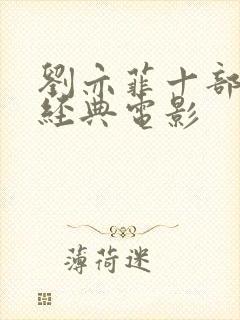 劉亦菲十部
經典電影
薄荷迷